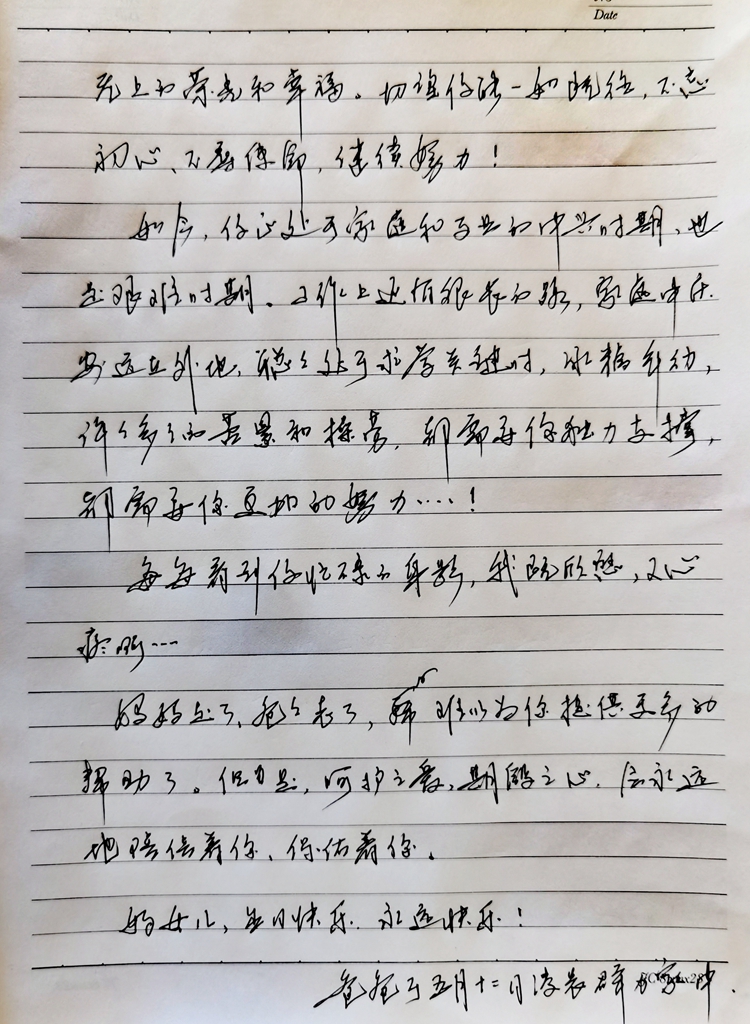 Date
无上的荣光和幸福。切望你能一如既往,不忘
初心,不辱使命,继续努力!
如今,你正处于家庭和事业的中兴时期,也
是艰难时期。工作上还有很长的路,家庭中乐
远在外地,聪聪处于求学关键时,冰糖年幼,
许许多多的苦累和操劳,都需要你独力支撑,
都需要你更加的努力……!
每每看到你忙碌的身影,我既欣慰,又心
疼啊…
妈妈走了,爸爸老了,难以为你提供更多的
帮助了。但是,呵护之爱、期盼之心,会永远
地陪伴着你、保佑着你。
女儿,生日快乐,永远快乐!
爸爸于五月十二日凌晨